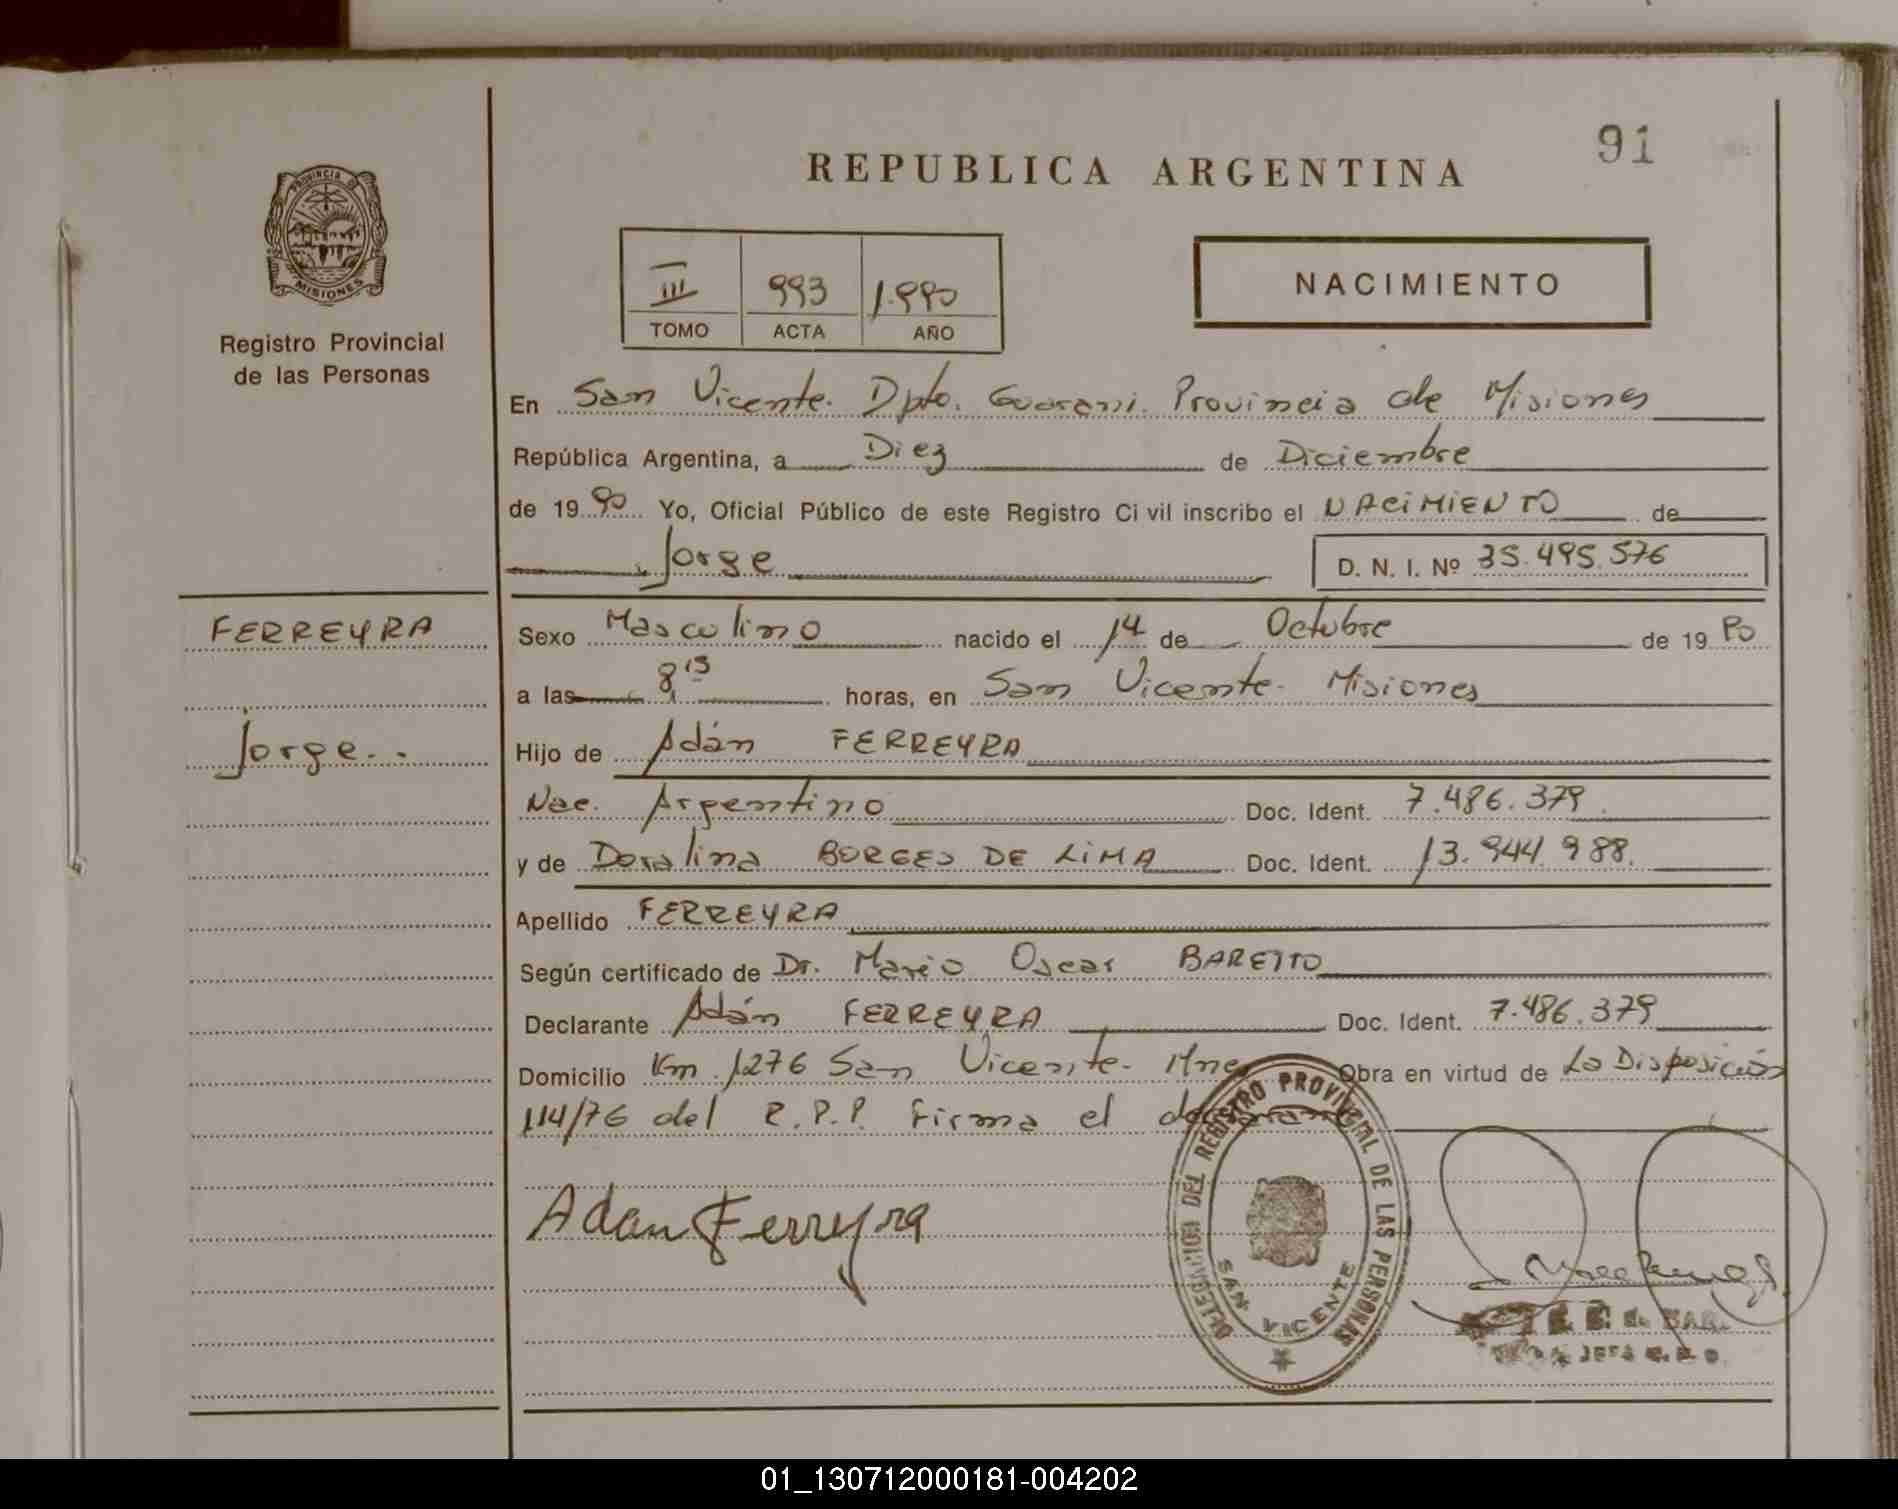 91
REPUBLICA ARGENTINA
PROVINCIA DE MISIONES
Registro Provincial
de las Personas
III 993 1.990
TOMO ACTA AÑO
NACIMIENTO
En San Vicente. Dpto. Guarani. Provincia de Misiones
República Argentina, a Diez de Diciembre
de 1990 Yo, Oficial Público de este Registro Civil inscribo el NACIMIENTO de
Jorge D. N. I. Nº 35.495.576
FERREYRA
Jorge..
Sexo Masculino nacido el 14 de Octubre de 1990
a las 8,15 horas, en San Vicente. Misiones
Hijo de Adán FERREYRA
Nac. Argentino Doc. Ident. 7.486.379.
y de Doralina BORGES DE LIMA Doc. Ident. 13.944.988.
Apellido FERREYRA
Según certificado de Dr. Mario Oscar BARETTO
Declarante Adán FERREYRA Doc. Ident. 7.486.379
Domicilio Km. 1276 San Vicente. Mnes Obra en virtud de La Disposición
114/76 del R.P.P. Firma el declarante
Adan Ferreyra
DELEGACION DEL REGISTRO PROVINCIAL DE LAS PERSONAS
SAN VICENTE
01_130712000181-004202